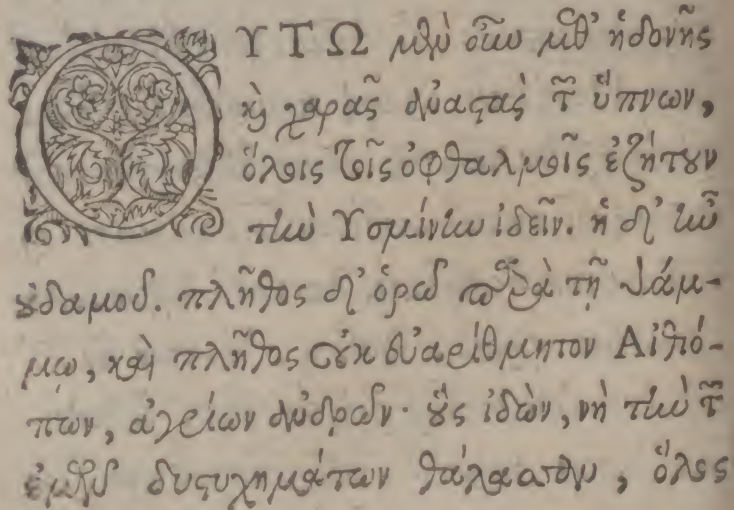 ΟΥΤΩ μὲν οὖν μεθ' ἡδονῆς
καὶ χαρᾶς ἀναστὰς τῶν ὕπνων,
ὅλοις τοῖς ὀφθαλμοῖς ἐζήτουν
τὴν Ὑσμίνην ἰδεῖν. ἡ δ' ἦν
οὐδαμοῦ. πλῆθος δ' ὁρῶ παρὰ τῇ ψάμ-
μῳ, καὶ πλῆθος οὐκ εὐαρίθμητον Αἰθιό-
πων, ἀγρίων ἀνδρῶν· οὓς ἰδὼν, νὴ τὴν τῶν
ἐμῶν δυστυχημάτων θάλασσαν, ὅλος